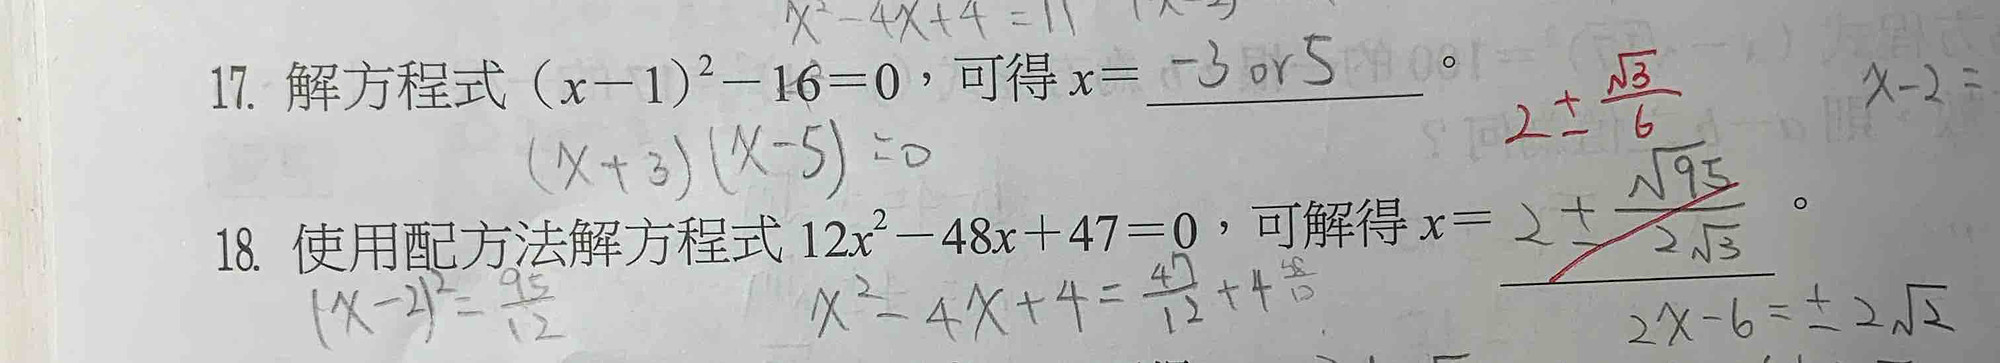 x²-4x+4=11
17. 解方程式(x-1)²-16=0,可得x= -3 or 5 。
(x+3)(x-5)=0
2±√3/6
x-2=
18. 使用配方法解方程式12x²-48x+47=0,可解得x= 2±√95/2√3 。
(x-2)²=95/12
x²-4x+4=47/12+4 48/12
2x-6=±2√2